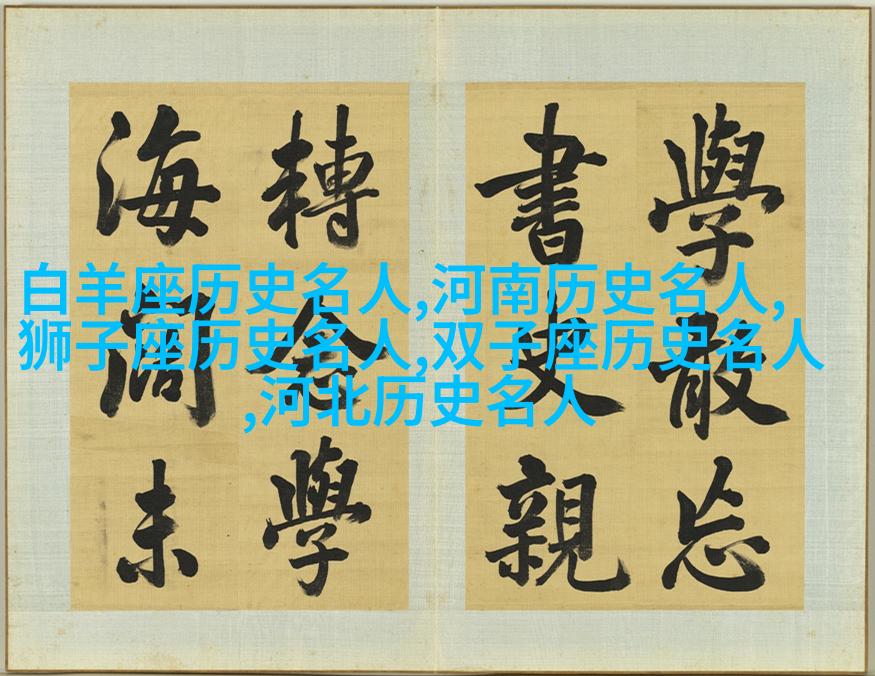 白羊座历史名人,河南历史名人,
狮子座历史名人,双子座历史名人
,河北历史名人
學散忘
書親
轉念學
海未